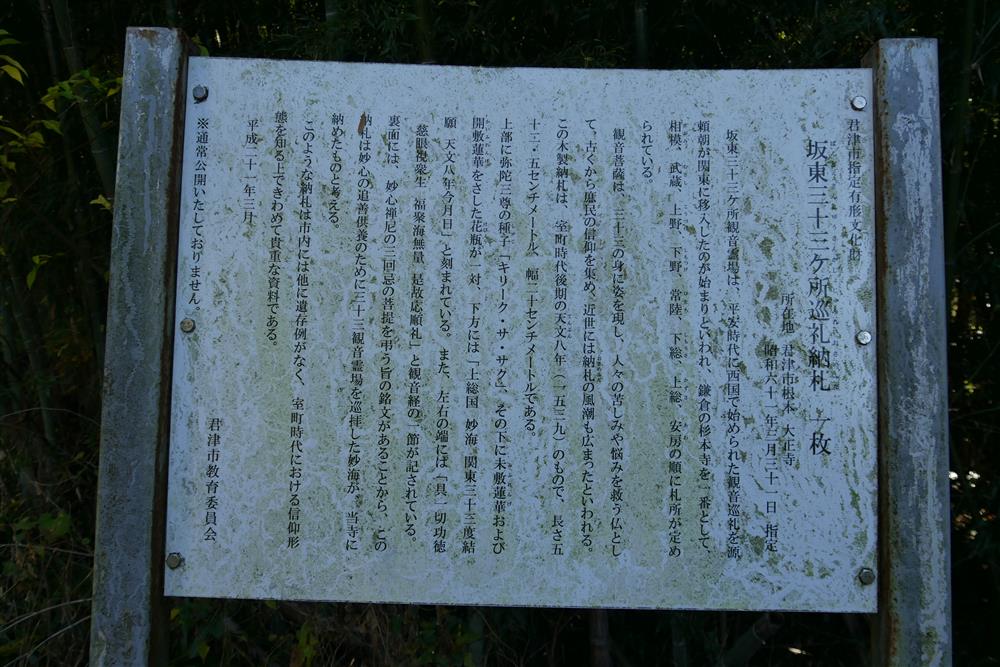 君津市指定有形文化財
坂東三十三ケ所巡礼納札 一枚
所在地 君津市根本 大正寺
昭和六十一年三月三十一日 指定
坂東三十三ケ所観音霊場は、平安時代に西国で始められた観音巡礼を源
頼朝が関東に移入したのが始まりといわれ、鎌倉の杉本寺を一番として、
相模、武蔵、上野、下野、常陸、下総、上総、安房の順に札所が定め
られている。
観音菩薩は、三十三の身に姿を現し、人々の苦しみや悩みを救う仏とし
て、古くから庶民の信仰を集め、近世には納札の風潮も広まったといわれる。
この木製納札は、室町時代後期の天文八年(一五三九)のもので、長さ五
十二・五センチメートル、幅二十センチメートルである。
上部に弥陀三尊の種子「キリーク・サ・サ・サク」、その下に未敷蓮華および
開敷蓮華をさした花瓶が一対、下方には「上総国 妙海 関東三十三度結
願 天文八年今月日」と刻まれている。また、左右の端には「具一切功徳
慈眼視衆生 福聚海無量 是故応頂礼」と観音経の一節が記されている。
裏面には、妙心禅尼の三回忌の菩提を弔う旨の銘文があることから、この
納札は妙心の追善供養のために三十三観音霊場を巡拝した妙海が、当寺に
納めたものと考える。
このような納札は市内には他に遺存例がなく、室町時代における信仰形
態を知る上できわめて貴重な資料である。
平成二十一年三月
君津市教育委員会
※通常公開いたしておりません。